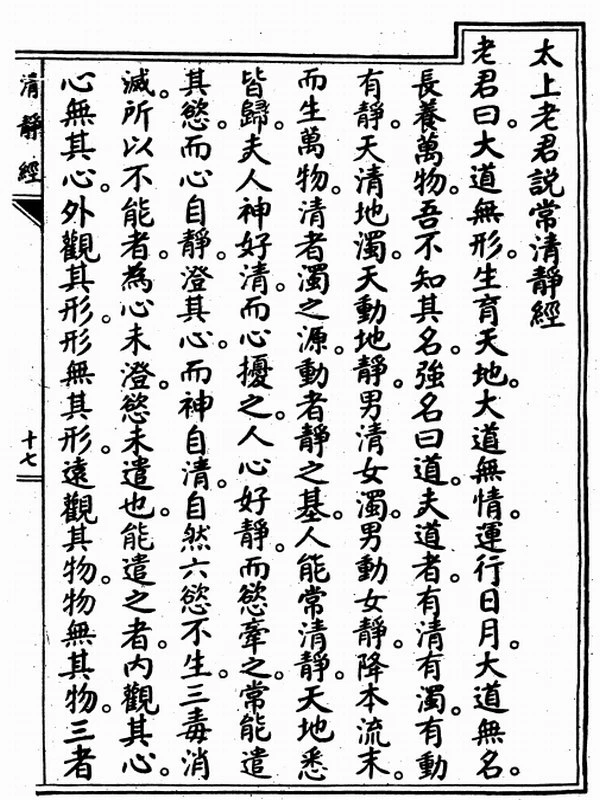 太上老君説常清靜經
老君曰。大道無形。生育天地。大道無情。運行日月。大道無名。
長養萬物。吾不知其名。強名曰道。夫道者。有清有濁。有動
有靜。天清地濁。天動地靜。男清女濁。男動女靜。降本流末。
而生萬物。清者濁之源。動者靜之基。人能常清靜。天地悉
皆歸。夫人神好清。而心擾之。人心好靜。而慾牽之。常能遣
其慾。而心自靜。澄其心。而神自清。自然六慾不生。三毒消
滅。所以不能者。為心未澄。慾未遣也。能遣之者。內觀其心。
心無其心。外觀其形。形無其形。遠觀其物。物無其物。三者
清靜經
十七